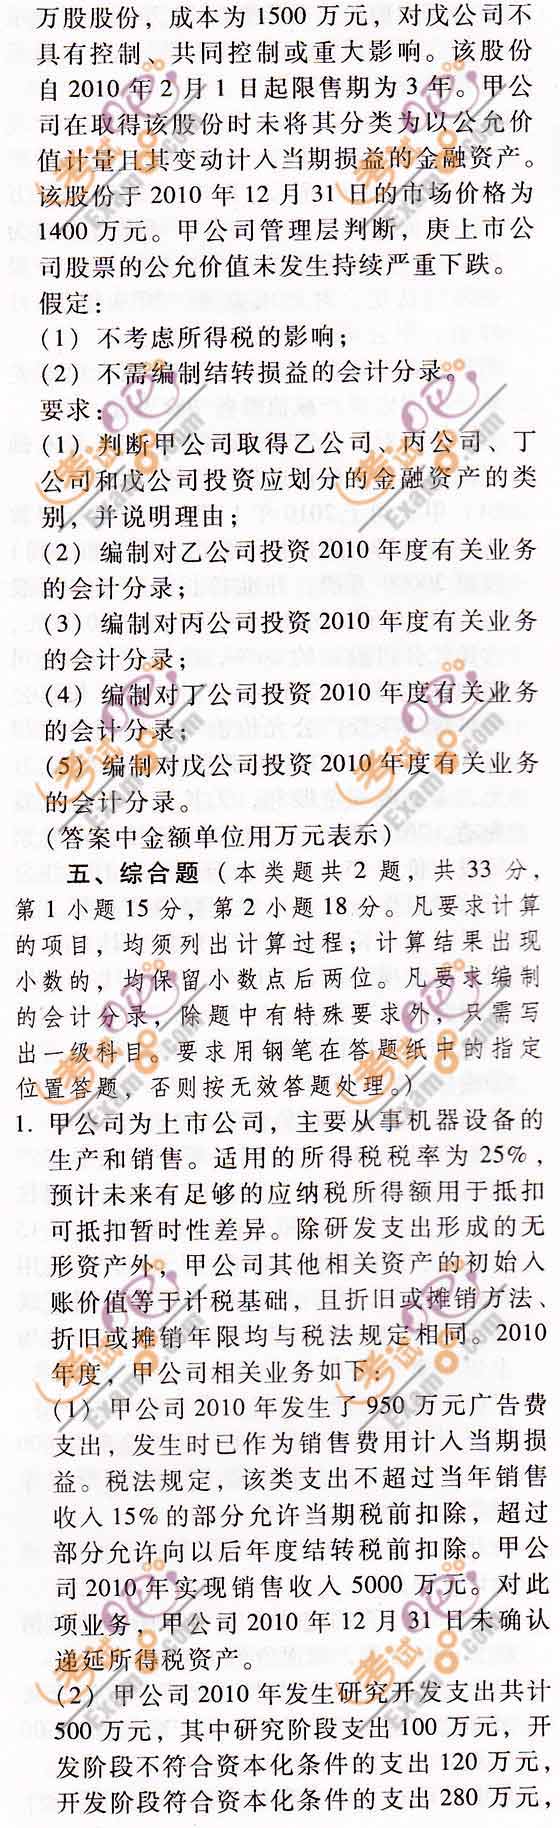 万股股份，成本为 1500 万元，对戊公司不
具有控制、共同控制或重大影响。该股份
自 2010 年 2 月 1 日起限售期为 3 年。甲公
司在取得该股份时未将其分类为以公允价
值计量且其变动计入当期损益的金融资产。
该股份于 2010 年 12 月 31 日的市场价格为
1400 万元。甲公司管理层判断，庚上市公
司股票的公允价值未发生持续严重下跌。
假定：
（1）不考虑所得税的影响；
（2）不需编制结转损益的会计分录。
要求：
（1）判断甲公司取得乙公司、丙公司、丁
公司和戊公司投资应划分的金融资产的类
别，并说明理由；
（2）编制对乙公司投资 2010 年度有关业务
的会计分录；
（3）编制对丙公司投资 2010 年度有关业务
的会计分录；
（4）编制对丁公司投资 2010 年度有关业务
的会计分录；
（5）编制对戊公司投资 2010 年度有关业务
的会计分录。
（答案中金额单位用万元表示）
五、综合题（本类题共 2 题，共 33 分，
第 1 小题 15 分，第 2 小题 18 分。凡要求计算
的项目，均须列出计算过程；计算结果出现
小数的，均保留小数点后两位。凡要求编制
的会计分录，除题中有特殊要求外，只需写
出一级科目。要求用钢笔在答题纸中的指定
位置答题，否则按无效答题处理。）
1. 甲公司为上市公司，主要从事机器设备的
生产和销售。适用的所得税税率为 25%，
预计未来有足够的应纳税所得额用于抵扣
可抵扣暂时性差异。除研发支出形成的无
形资产外，甲公司其他相关资产的初始入
账价值等于计税基础，且折旧或摊销方法、
折旧或摊销年限均与税法规定相同。2010
年度，甲公司相关业务如下：
（1）甲公司 2010 年发生了 950 万元广告费
支出，发生时已作为销售费用计入当期损
益。税法规定，该类支出不超过当年销售
收入 15% 的部分允许当期税前扣除，超过
部分允许向以后年度结转税前扣除。甲公
司 2010 年实现销售收入 5000 万元。对此
项业务，甲公司 2010 年 12 月 31 日未确认
递延所得税资产。
（2）甲公司 2010 年发生研究开发支出共计
500 万元，其中研究阶段支出 100 万元，开
发阶段不符合资本化条件的支出 120 万元，
开发阶段符合资本化条件的支出 280 万元，